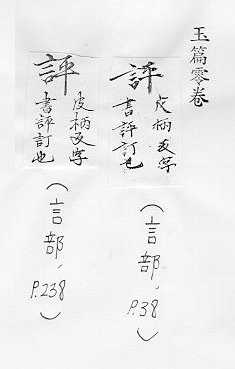 玉篇零卷
評
皮柄反字
書評訂也
(言部,
P.38)
評
皮柄反字
書評訂也
(言部,
P.238)